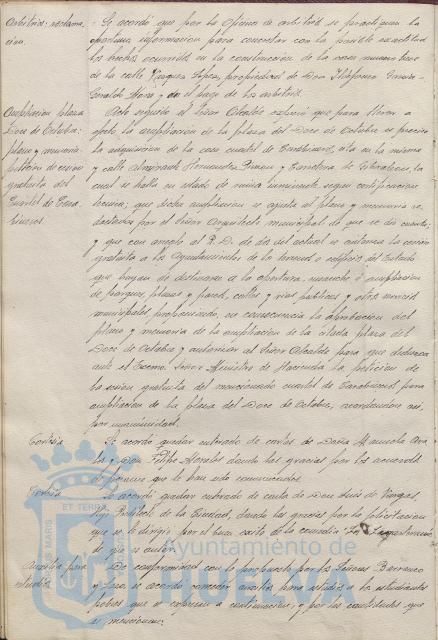 Arbitrios: reclama-
ción.
Se acordó que por la Oficina de arbitrios se practiquen la
oportuna información para concretar con la posible exactitud
los hechos ocurridos en la construcción de la casa número trece
de la calle Vázquez López, propiedad de Don Ildefonso
y en el pago de los arbitrios.
Ampliación plaza
Doce de Octubre:
plano y memoria:
petición de cesión
gratuita del
Cuartel de Cara-
bineros.
Acto seguido el Señor Alcalde expuso que para llevar a
efecto la ampliación de la plaza del Doce de Octubre es preciso
la adquisición de la casa cuartel de Carabineros, sita en la misma
y calle Almirante Hernández Pinzón y Carretera de Gibraleón, la
cual se halla en estado de ruina inminente según certificación
técnica; que dicha ampliación se ajusta al plano y memoria re-
dactados por el Señor Arquitecto municipal de que se dió cuenta;
y que con arreglo al R. D. de del actual se autoriza la cesión
gratuita a los Ayuntamientos de los terrenos o edificios del Estado
que hayan de destinarse a la apertura, ensanche o ampliación
de parques, plazas y paseos, calles y vías públicas y otros servicios
municipales, proponiendo, en consecuencia la aprobación del
plano y memoria de la ampliación de la citada plaza del
Doce de Octubre y autorizar al Señor Alcalde para que deduzca
ante el Excmo. Señor Ministro de Hacienda la petición de
la cesión gratuita del mencionado cuartel de Carabineros para
ampliación de la plaza del Doce de Octubre, acordándose así,
por unanimidad.
Cortesía
Se acordó quedar enterado de cartas de Doña Manuela
y Don Felipe Morales dando las gracias por los acuerdos
de pésame que le han sido comunicados.
Cortesía
Se acordó quedar enterado de carta de Don Luis de Vargas,
hijo de la Ciudad, dando las gracias por la felicitación
que se le dirigió por el buen éxito de la comedia
de que es autor.
Auxilio para
estudios.
De conformidad con lo propuesto por los Señores Barranco
y se acordó conceder auxilios para estudios a los estudiantes
pobres que se expresan a continuación, y por las cantidades que
se mencionan:
PORTUS MARIS
ET TERRAE
Ayuntamiento de
HUELVA